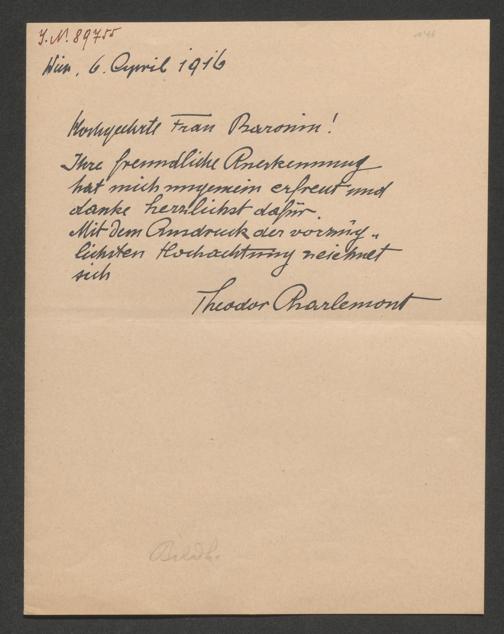 J.N. 89755
Wien, 6. April 1916
Hochgeehrte Frau Baronin!
Ihre freundliche Anerkennung
hat mich ungemein erfreut und
danke herzlichst dafür.
Mit dem Ausdruck der vorzüg„
lichsten Hochachtung zeichnet
sich
Theodor Charlemont
Bildh.